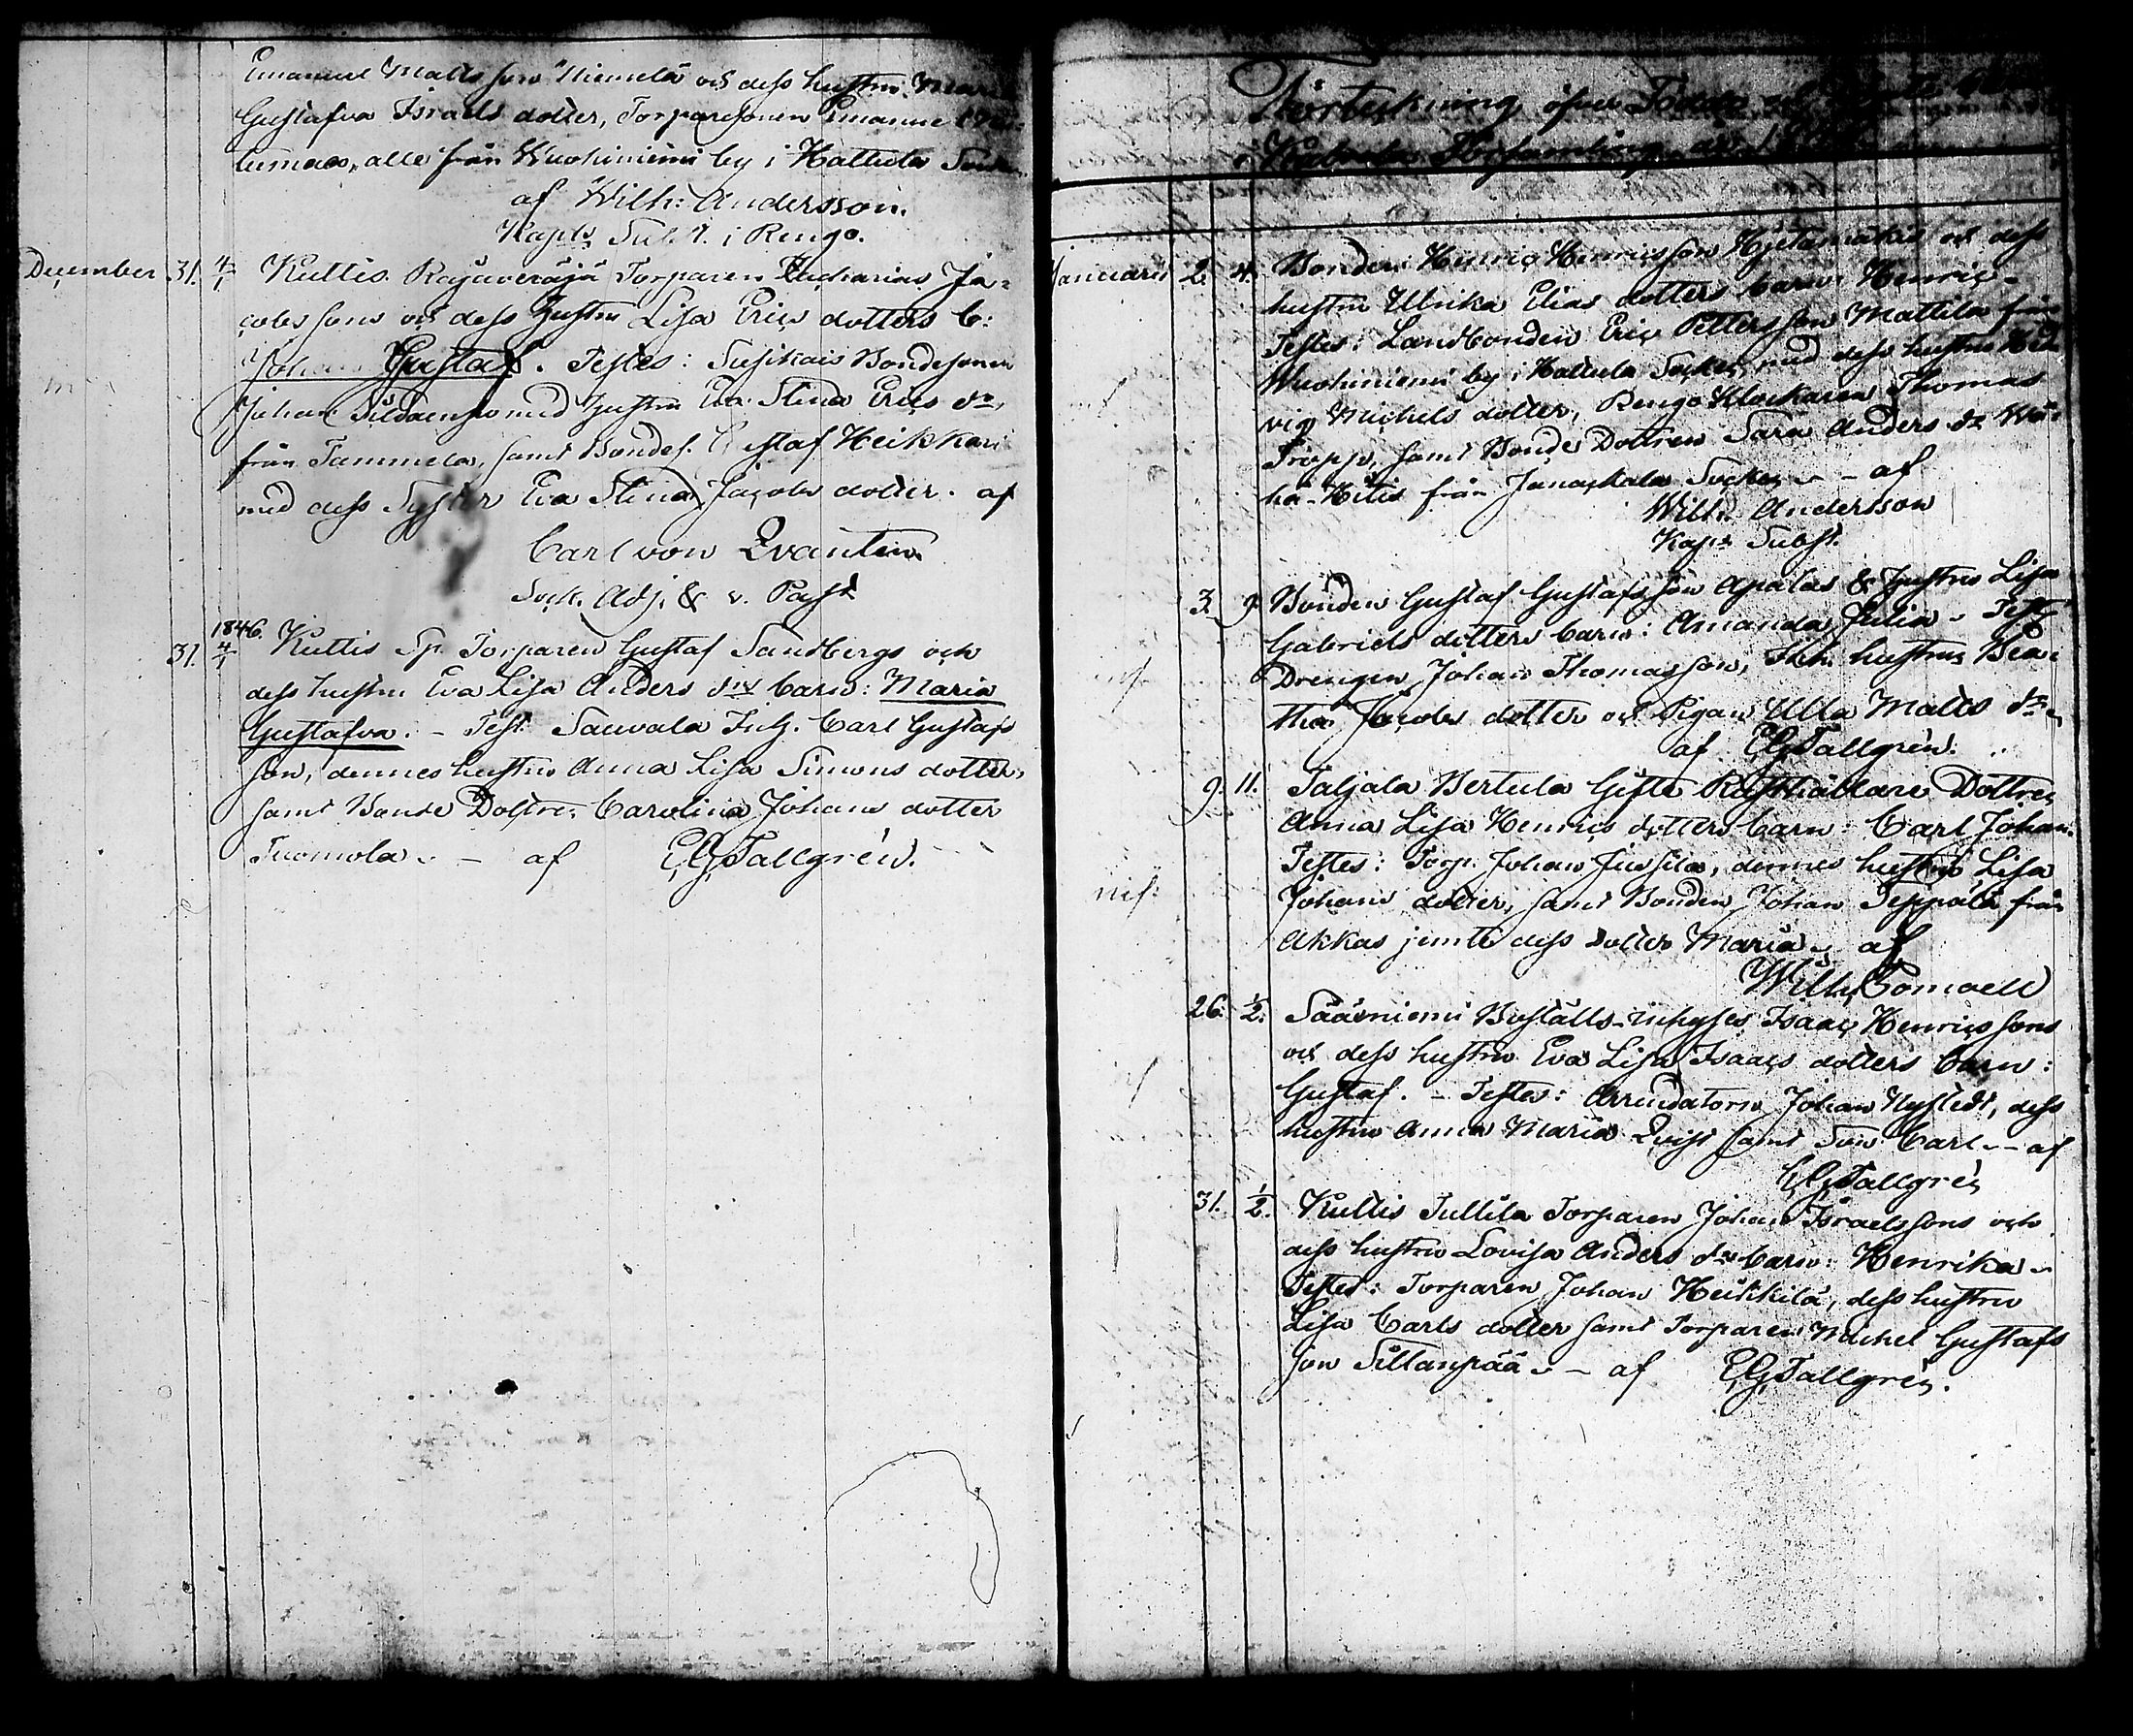 Emanuel Matts son Niemelä och dess hustru Maria
Gustafva Israels dotter, Torparesonen Emanuel
alla från Wuohiniemi by i Hattula Sockn
af Wilh: Andersson.
Kapls Subst. i Rengo.
December 31. 4/1 Kuttis Rajaveräjä Torparen Zacharias Ja=
cobs sons och dess Hustru Lisa Erics dotters b:
Johan Gustaf. Testes: Susikais Bondesonen
Johan med Hustru Eva Stina Erics dr,
från Tammela, samt Bondes. Gustaf Heikkari
med dess Syster Eva Stina Jacobs dotter. af
Carl von Qvanten
Sock. Adj. & v. Past.
1846.
31. 4/1 Kuttis Sp. Torparen Gustaf Sandbergs och
dess hustru Eva Lisa Anders drs barn: Maria
Gustafva. - Test. Sauvala Inh. Carl Gustafs
son, dennes hustru Anna Lisa Simons dotter,
samt Bonde Dottren Carolina Johans dotter
Tuomola - af EGTallgrén.
Förteckning öfver Födde och
i Församling år 18
Januarii 2. 4. Bonden Henric Henricsson Hjetamäkis och dess
hustru Ulrika Elias dotters barn: Henric -
Testes: Landbonden Eric Petters son Mattila från
Wuohiniemi by i Hattula Socken, med dess hustru Hed
vig Michels dotter, Rengo Klockaren Thomas
Tropp, samt Bonde Dottren Sara Anders dr Wä=
hä-Hiitis från Janackala Socken - af
Wilh. Andersson
Kaps Subst.
3. 9. Bonden Gustaf Gustafs son Apalas & Hustru Lisa
Gabriels dotters barn: Amanda Julia - Test.
Drengen Johan Thomasson, Inh. hustrun Bea=
tha Jacobs dotter och Pigan Ulla Matts dr
af EGTallgrén.
9. 11. Taljala Bertula Gifta Rusthållare Dottren
Anna Lisa Henrics dotters barn: Carl Johan.
Testes: Torp. Johan Jussila, dennes hustru Lisa
Johans dotter, samt Bonden Johan Seppälä från
Akkas jemte dess dotter Maria - af
Wilh. Bomaell
26. 1/2. Sääxniemi Boställs-inhyses Isaac Henrics sons
och dess hustru Eva Lisa Isaacs dotters barn:
Gustaf. - Testes: Arrendatorn Johan Nystedt, dess
hustru Anna Maria Qvist samt Son Carl - af
EGTallgrén
31. 1/2. Kuttis Tullila Torparen Johan Israels sons och
dess hustru Lovisa Anders drs barn: Henrika -
Testes: Torparen Johan Heikkilä, dess hustru
Lisa Carls dotter samt Torparen Michel Gustafs
son Sillanpää - af EGTallgrén.